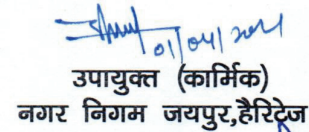 01/04/2021
उपायुक्त (कार्मिक)
नगर निगम जयपुर,हैरिटेज